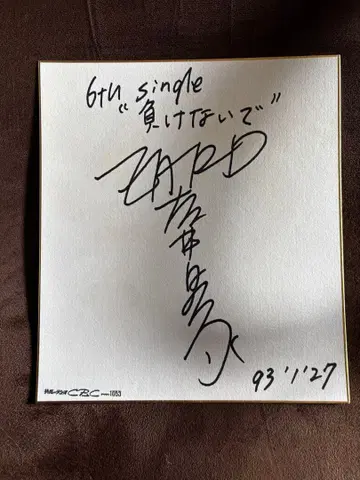 6th single
"負けないで"
ZARD
坂井泉水
93 '1 '27
CBC 1053